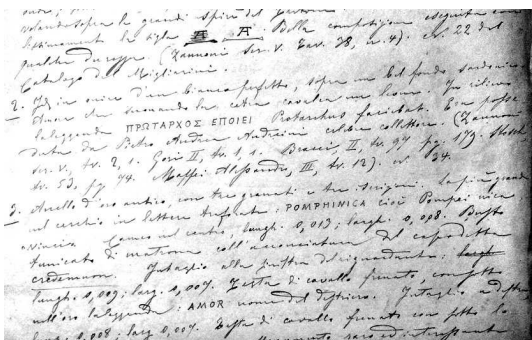 volando sopra le grandi spire del
la sigla A A. Bella composizione eseguita con
qualche durezza (Zannoni ser. V. Tav. 38, n. 4). n. 22 del
Catalogo di Migliarini.
2. Id. in onice d'un bianco perfetto, sopra un bel fondo, sardonico
Amore che suonando la cetra cavalca un leone. In rilievo
la leggenda ΠΡΩΤΑΡΧΟΣ ΕΠΟΙΕΙ Protarchus faciebat. Era posse
duta da Pietro Andrea Andreini celebre collettore. (Zannoni
ser. V, tv. 2, 1. Gori II, tv. 1, 1. Bracci, II, tv. 97 pg. 179. Stosch
tv. 53, pg. 74. Maffei Alessandro, III, tv. 12). n. 34.
3. Anello d'oro antico, con tre granati e tre La più grande
nel cerchio in lettere traforate: POMPHINICA cioè Pompei, nica
Cameo nel centro, lungh. 0,013; largh. 0,008. Busto
tunicato di matrona coll'acconciatura del capo detta
credemnon. Intaglio alla sinistra del riguardante: largh
lungh. 0,009; largh. 0,007. Testa di cavallo frenato, con sotto
nell'oro la leggenda: AMOR nome del destriero. Intaglio a destra
lung. 0,008; larg 0,007. Testa di cavallo frenato con sotto lo
raro ed interessante